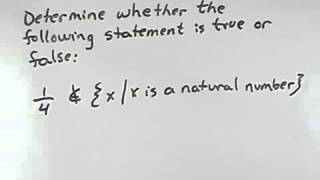 Determine whether the
following statement is true or
false:
1/4 ∉ {x/x is a natural number}